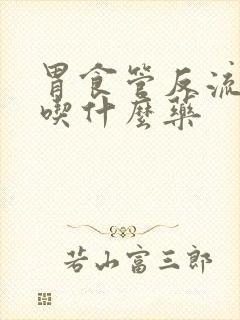 胃食管反流
喫什麼藥
若山富三郎